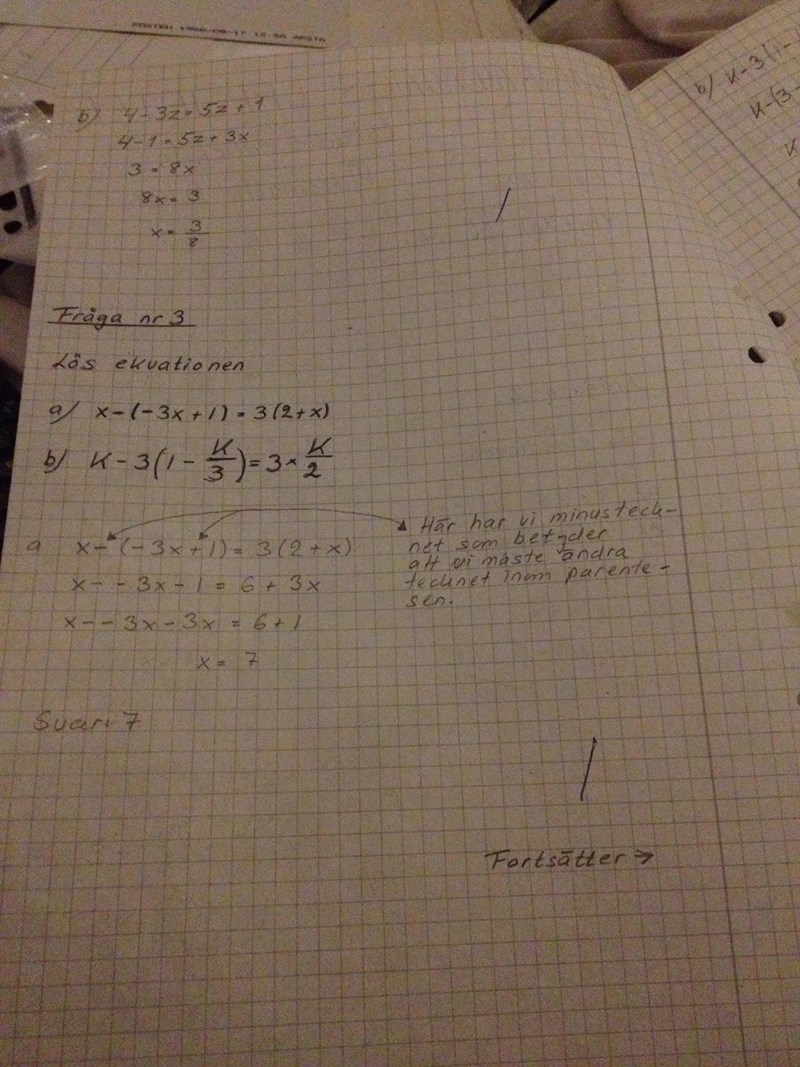 POSTEN 1988-08-17 12-50 ARSTA
b) 4-3z=5z+1
4-1=5z+3x
3=8x
8x=3
x=3/8
Fråga nr 3
Lös ekvationen
a) x-(-3x+1)=3(2+x)
b) K-3(1-K/3)=3×K/2
a x-(-3x+1)=3(2+x)
x--3x-1=6+3x
x--3x-3x=6+1
x=7
Svar: 7
Här har vi minusteck-
net som betyder
att vi måste ändra
tecknet inom parente-
sen.
Fortsätter →
b) K-3(1-
K-(3-
K